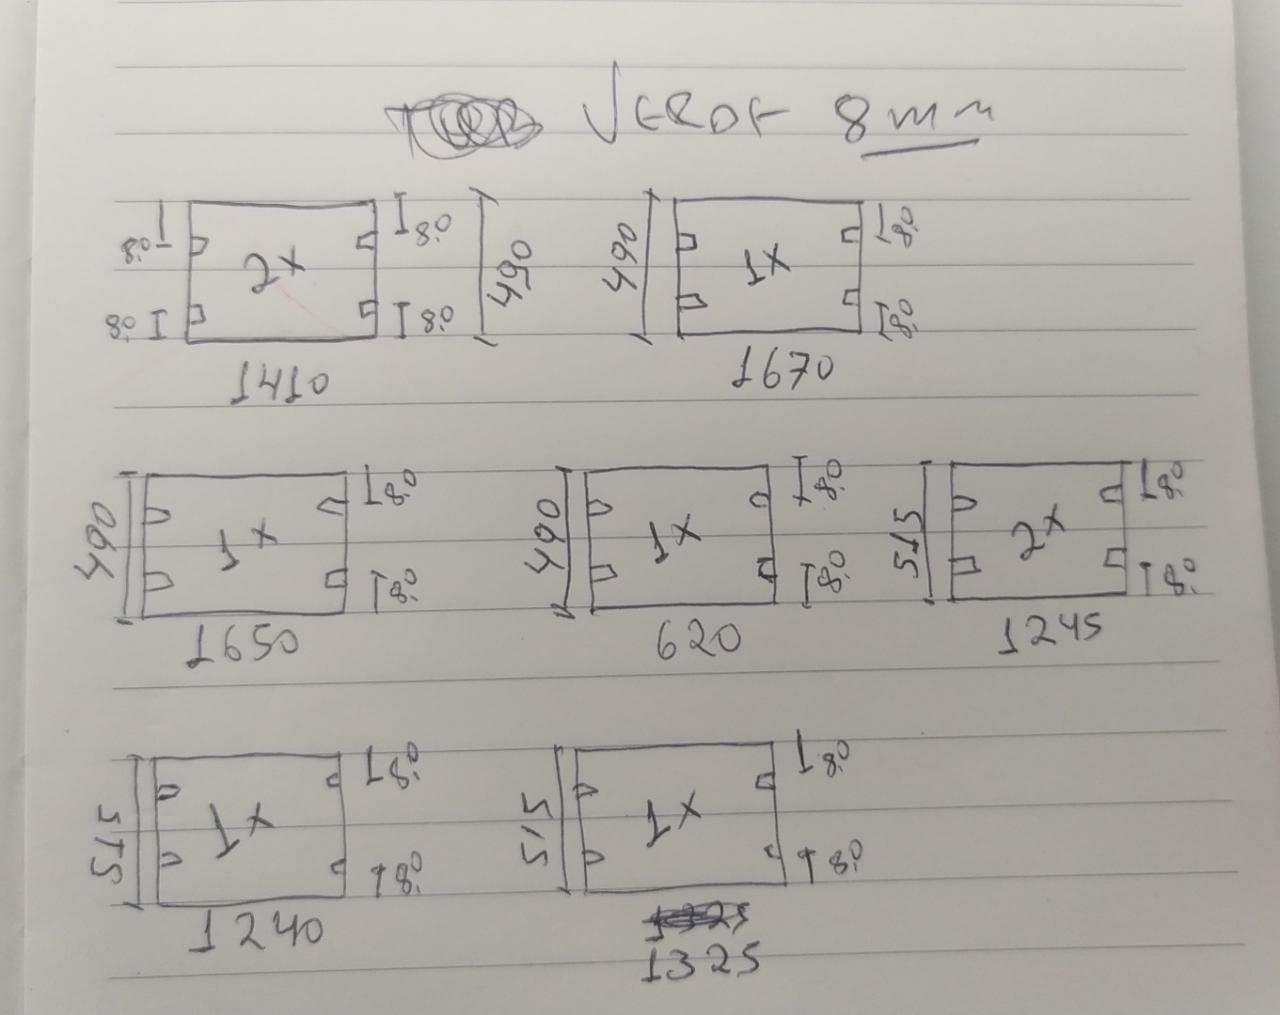 VERDE 8mm
8.0 2x 8.0 490
8.0 8.0
1410
490 1x 8.0
8.0
1670
490 1x 8.0
8.0
1650
490 1x 8.0
8.0
620
515 2x 8.0
8.0
1245
515 1x 8.0
8.0
1240
515 1x 8.0
8.0
1325